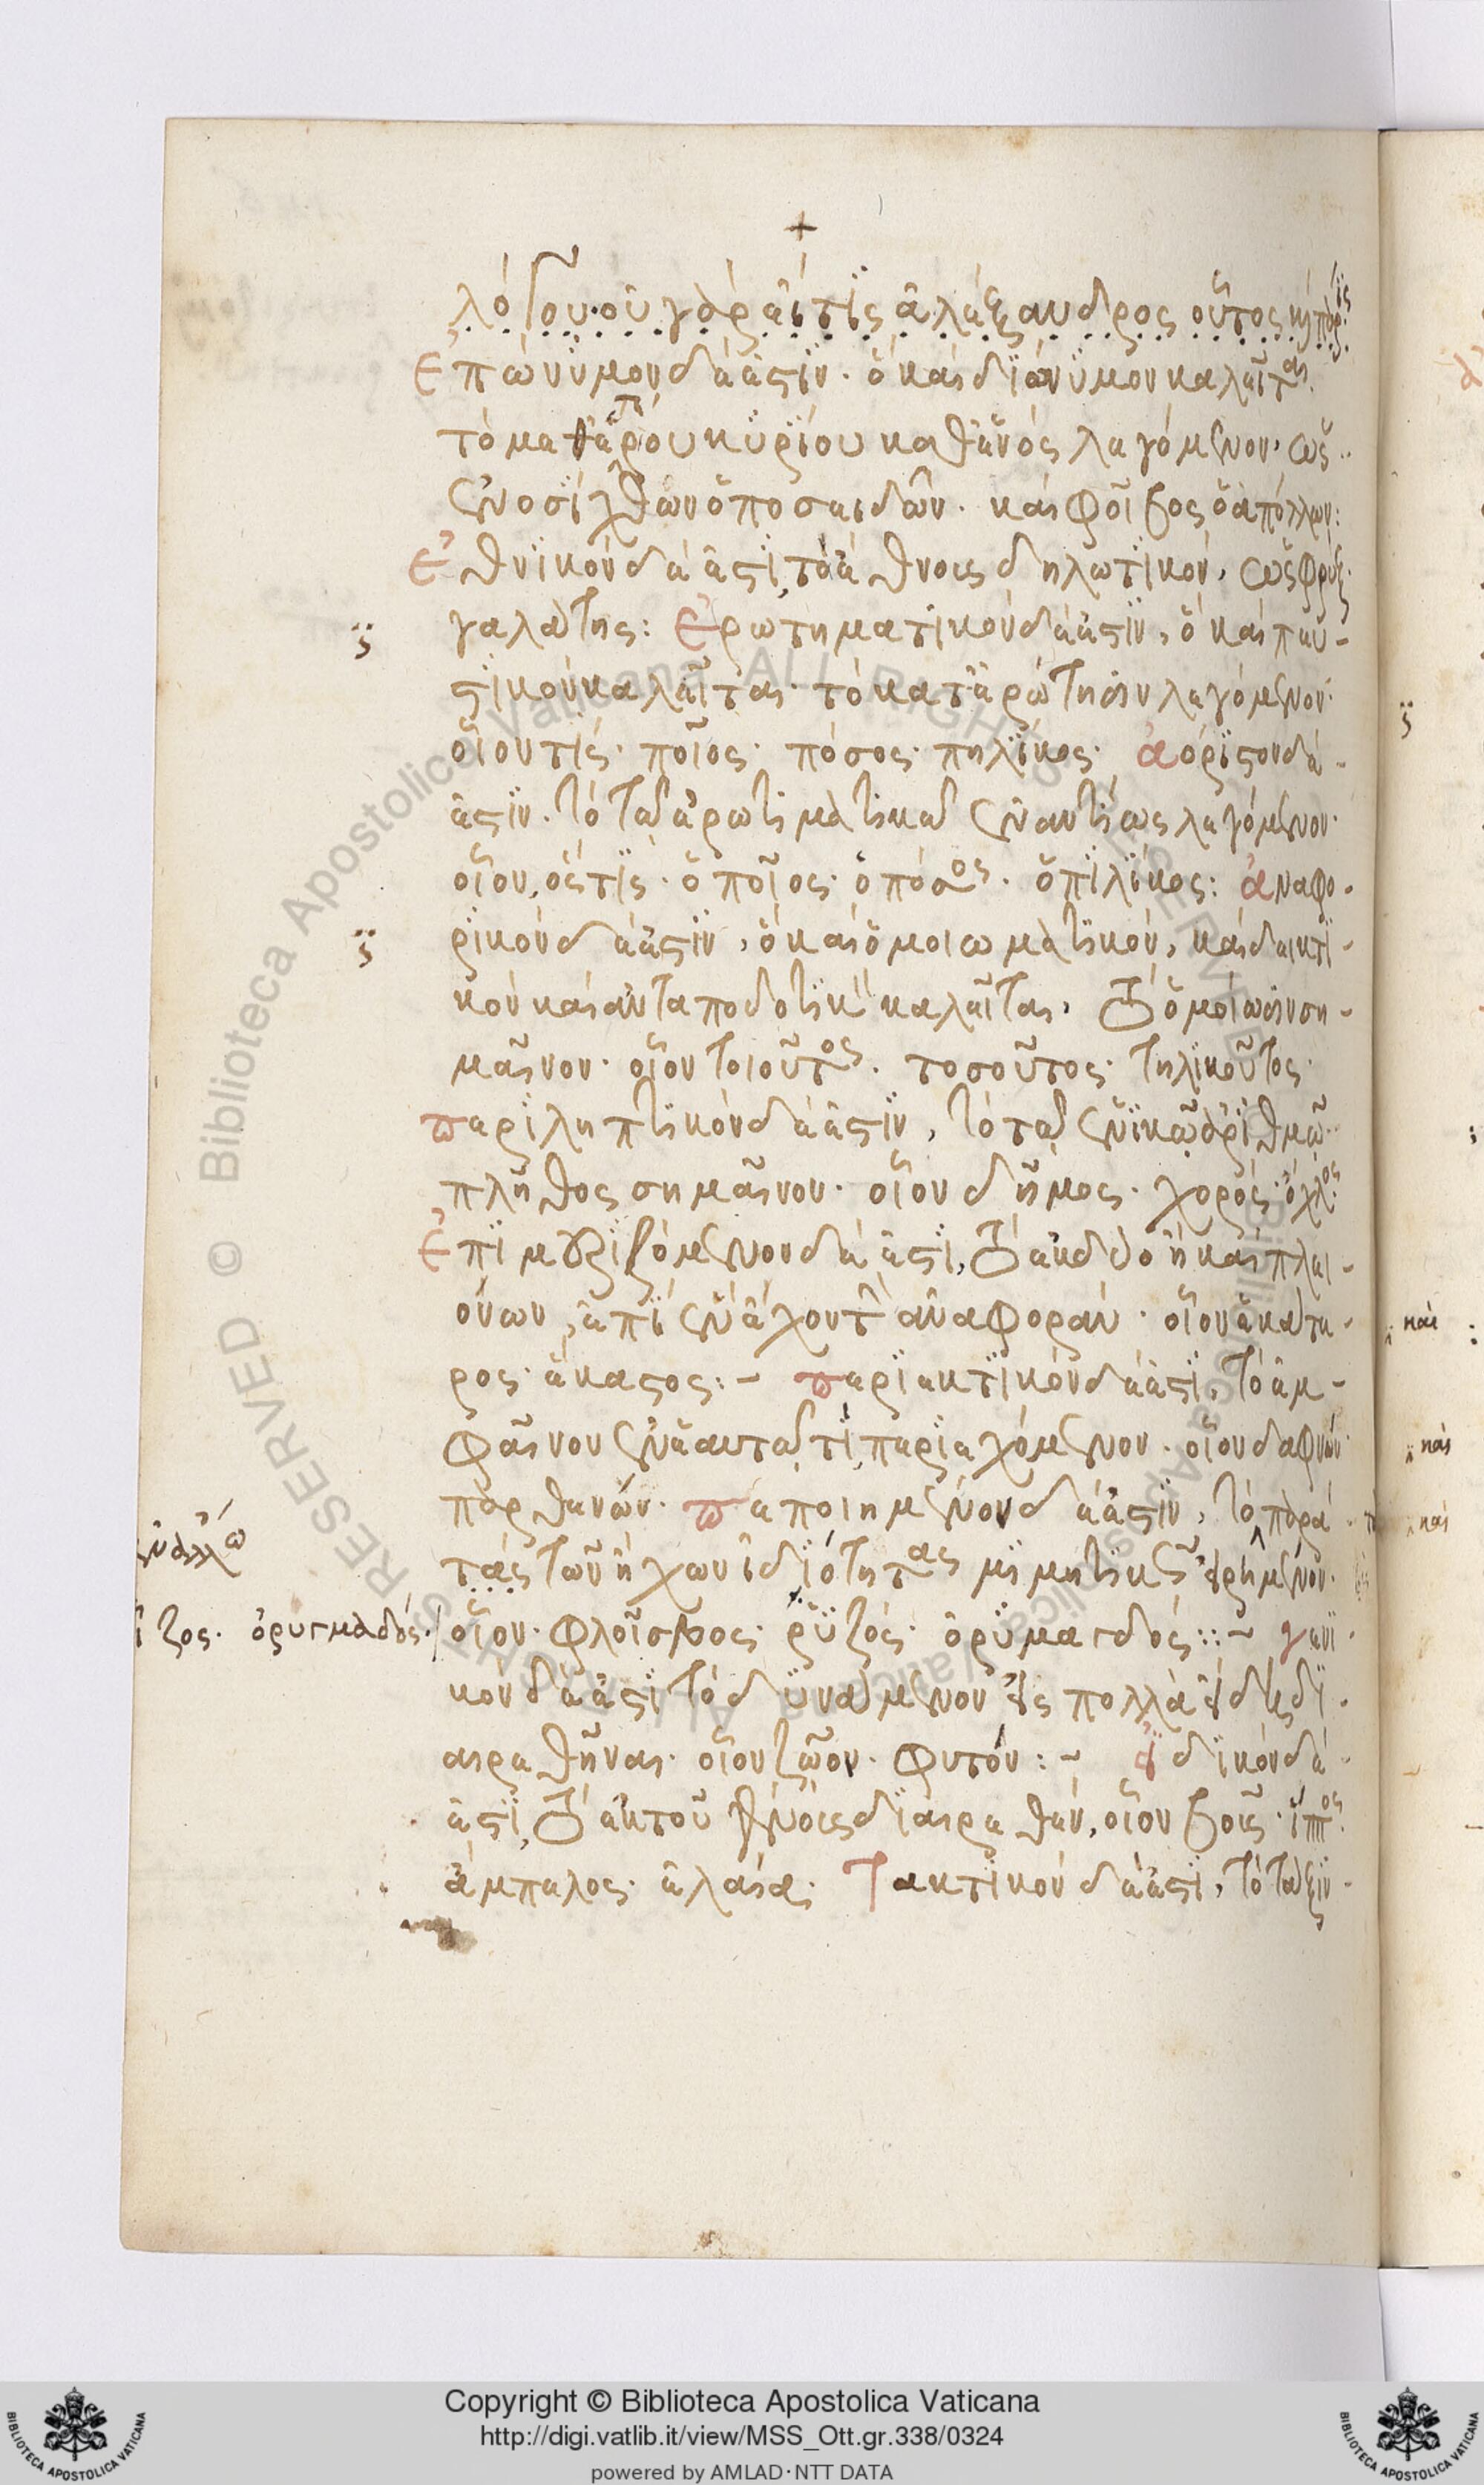 λόγου· οὐ γὰρ ἐστὶς ἀλέξανδρος οὗτος
Ἐπώνυμον δέ ἐστιν· ὃ καὶ διώνυμον καλεῖται.
τὸ μεθ' ἑτέρου κυρίου καθ' ἑνὸς λεγόμενον, ὡς
ἐνοσίχθων ὁ ποσειδῶν· καὶ φοῖβος ὁ ἀπόλλων:
Ἐθνικὸν δέ ἐστι, τὸ ἔθνους δηλωτικόν, ὡς φρὺξ·
γαλάτης: Ἐρωτηματικὸν δέ ἐστιν, ὃ καὶ πευ-
στικὸν καλεῖται· τὸ κατ' ἐρώτησιν λεγόμενον·
οἷον τίς· ποῖος· πόσος· πηλίκος· ἀόριστον δέ-
ἐστιν. τὸ τῶ ἐρωτηματικῶ ἐναντίως λεγόμενον·
οἷον, ὅστις· ὁποῖος· ὁπόσος· ὁπιλίκος: ἀναφο-
ρικὸν δέ ἐστιν, ὃ καὶ ὁμοιωματικόν, καὶ δεικτι-
κὸν καὶ ἀνταποδοτικὸν καλεῖται, τὸ ὁμοίωσιν ση-
μαῖνον· οἷον τοιοῦτος· τοσοῦτος· τηλικοῦτος·
περιληπτικὸν δέ ἐστιν, τὸ τῶ ἑνικῶ ἀριθμῶ
πλῆθος σημαῖνον· οἷον δῆμος· χορὸς· ὄχλος:
Ἐπιμεριζόμενον δέ ἐστι, τὸ ἐκ δύο ἢ καὶ πλει-
όνων, ἐπὶ ἓν ἔχον τὴν ἀναφοράν· οἷον ἑκάτε-
ρος· ἕκαστος:- περιεκτικὸν δέ ἐστι, τὸ ἐμ-
φαῖνον ἐν ἑαυτῶ τὶ περιεχόμενον· οἷον δαφνών·
παρθενών· πεποιημένον δέ ἐστιν, τὸ παρὰ
τὰς τῶν ἤχων ἰδιότητας μιμητικῶς εἰρημένον·
οἷον· φλοῖσβος· ῥύζος· ὀρυμαγδός::- γενι-
κὸν δέ ἐστι τὸ δυνάμενον εἰς πολλὰ εἴδη δι-
αιρεθῆναι· οἷον ζῶον· φυτόν:- εἰδικὸν δέ
ἐστι, τὸ ἐκ τοῦ γένους διαιρεθέν, οἷον βοῦς· ἵππος·
ἄμπελος· ἐλαία· τακτικὸν δέ ἐστι, τὸ τάξιν-
ὀρυγμαδός·
Copyright © Biblioteca Apostolica Vaticana
http://digi.vatlib.it/view/MSS_Ott.gr.338/0324
powered by AMLAD·NTT DATA